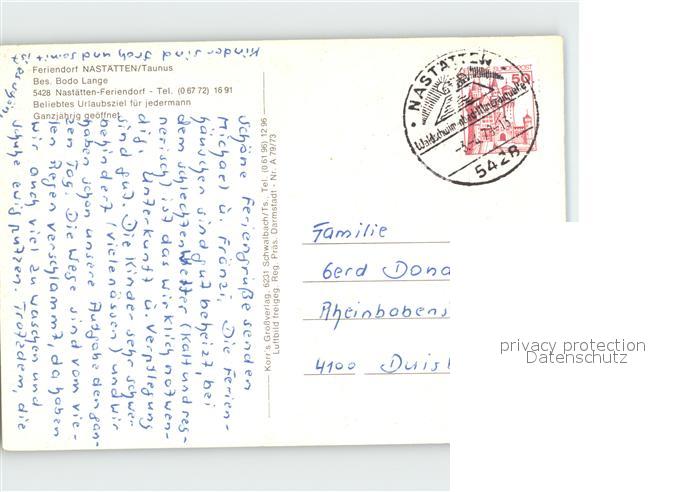 Feriendorf NASTÄTTEN/Taunus
Bes. Bodo Lange
5428 Nastätten-Feriendorf - Tel. (0 67 72) 16 91
Beliebtes Urlaubsziel für jedermann
Ganzjährig geöffnet
Schöne Feriengrüße senden
Michael u. Fränzi. Die Ferien-
häuschen sind gut beheizt, bei
dem schlechten Wetter (kalt und reg-
nerisch) ist das wirklich notwen-
dig. Unterkunft u. Verpflegung
sind gut. Die Kinder sehr schwer
behindert (viele nässen) und wir
haben schon unsere Aufgabe den gan-
zen Tag. Die Wege sind vom vie-
len Regen verschlammt, da haben
wir auch viel zu waschen und
Schuhe ewig putzen. Trotzdem, die
Kinder sind froh und somit ist
Korr's Großverlag, 6231 Schwalbach/Ts., Tel. (0 61 96) 12 96
Luftbild freigeg. Reg. Präs. Darmstadt - Nr. A 79/73
NASTÄTTEN
5428
50
Familie
Gerd Dona
Rheinbabens
4100 Duisb
privacy protection
Datenschutz